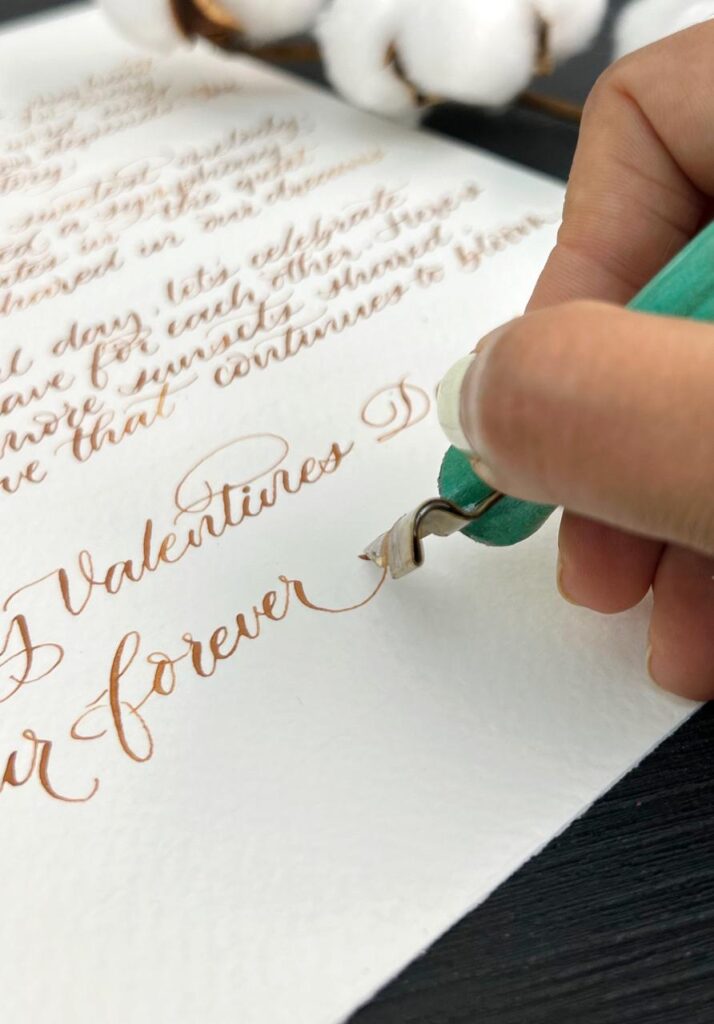 sweetest melody.
d a symphony
tes in the quiet
shared in our dreams
l day, let's celebrate
ave for each other. Here's
more sunsets shared,
ve that continues to bloom.
y Valentines D
ur forever